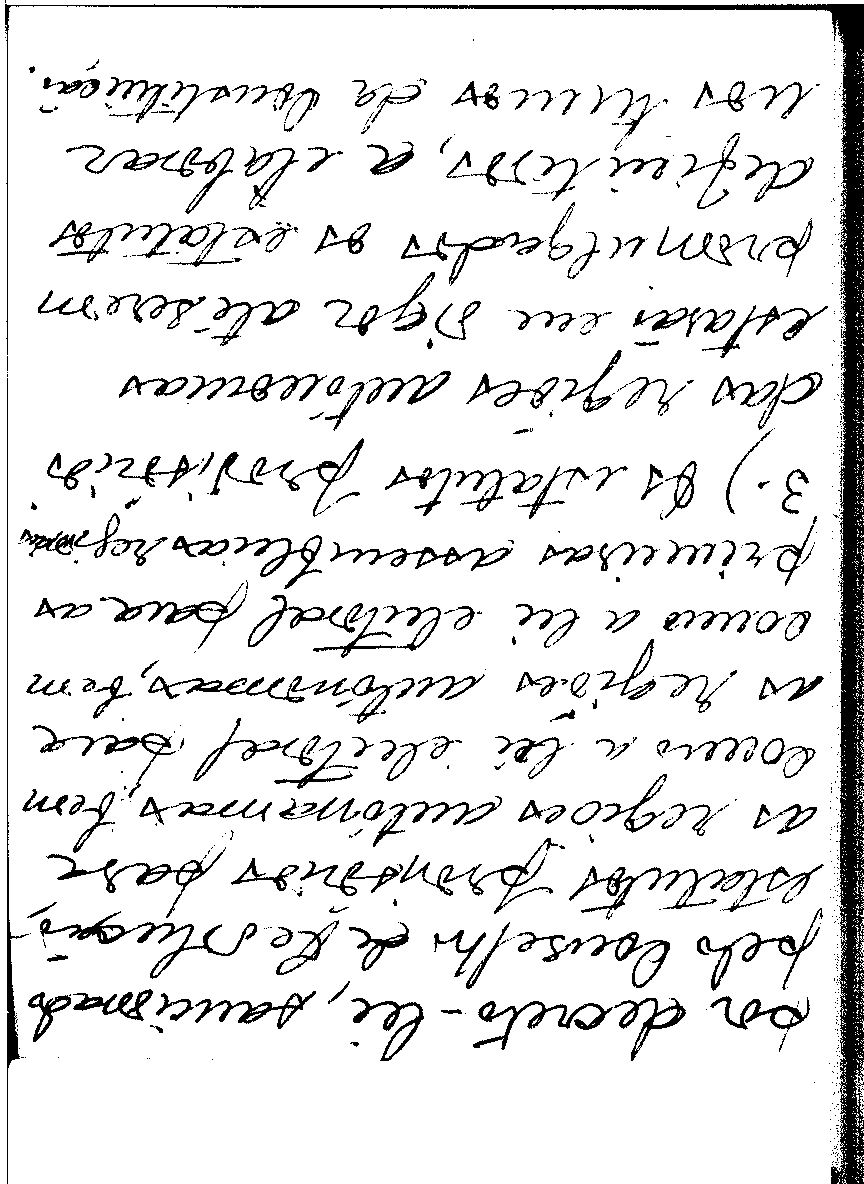 por decreto-lei, sancionado
pelo Conselho de Revolução,
estatutos provisórios para
as regiões autónamas, bem
como a lei eleitoral para
as regiões autónomas, bem
como a lei eleitoral para as
primeiras assembleias regionais
3.) Os estatutos provisórios
das regiões autónomas
estarão em vigor até serem
promulgados os estatutos
definitivos, a elaborar
nos termos da Constituição.